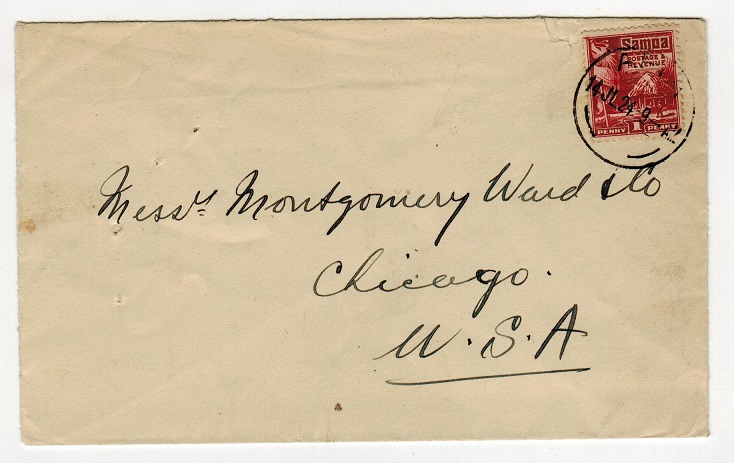 Samoa
POSTAGE &
REVENUE
PENNY 1 PENNY
14 JL 24 9
Messrs Montgomery Ward & Co
Chicago.
U.S.A